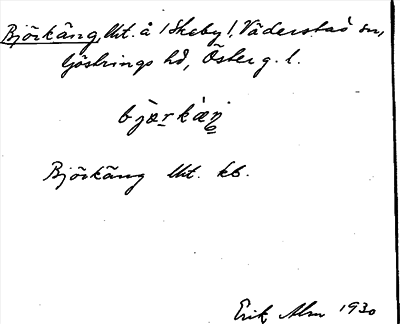 Björkäng, Utt. å (Skeby), Väderstads sn,
Göstrings hd, Österg. l.
bjærkæŋ
Björkäng Utt. kb.
Erik Alm 1930